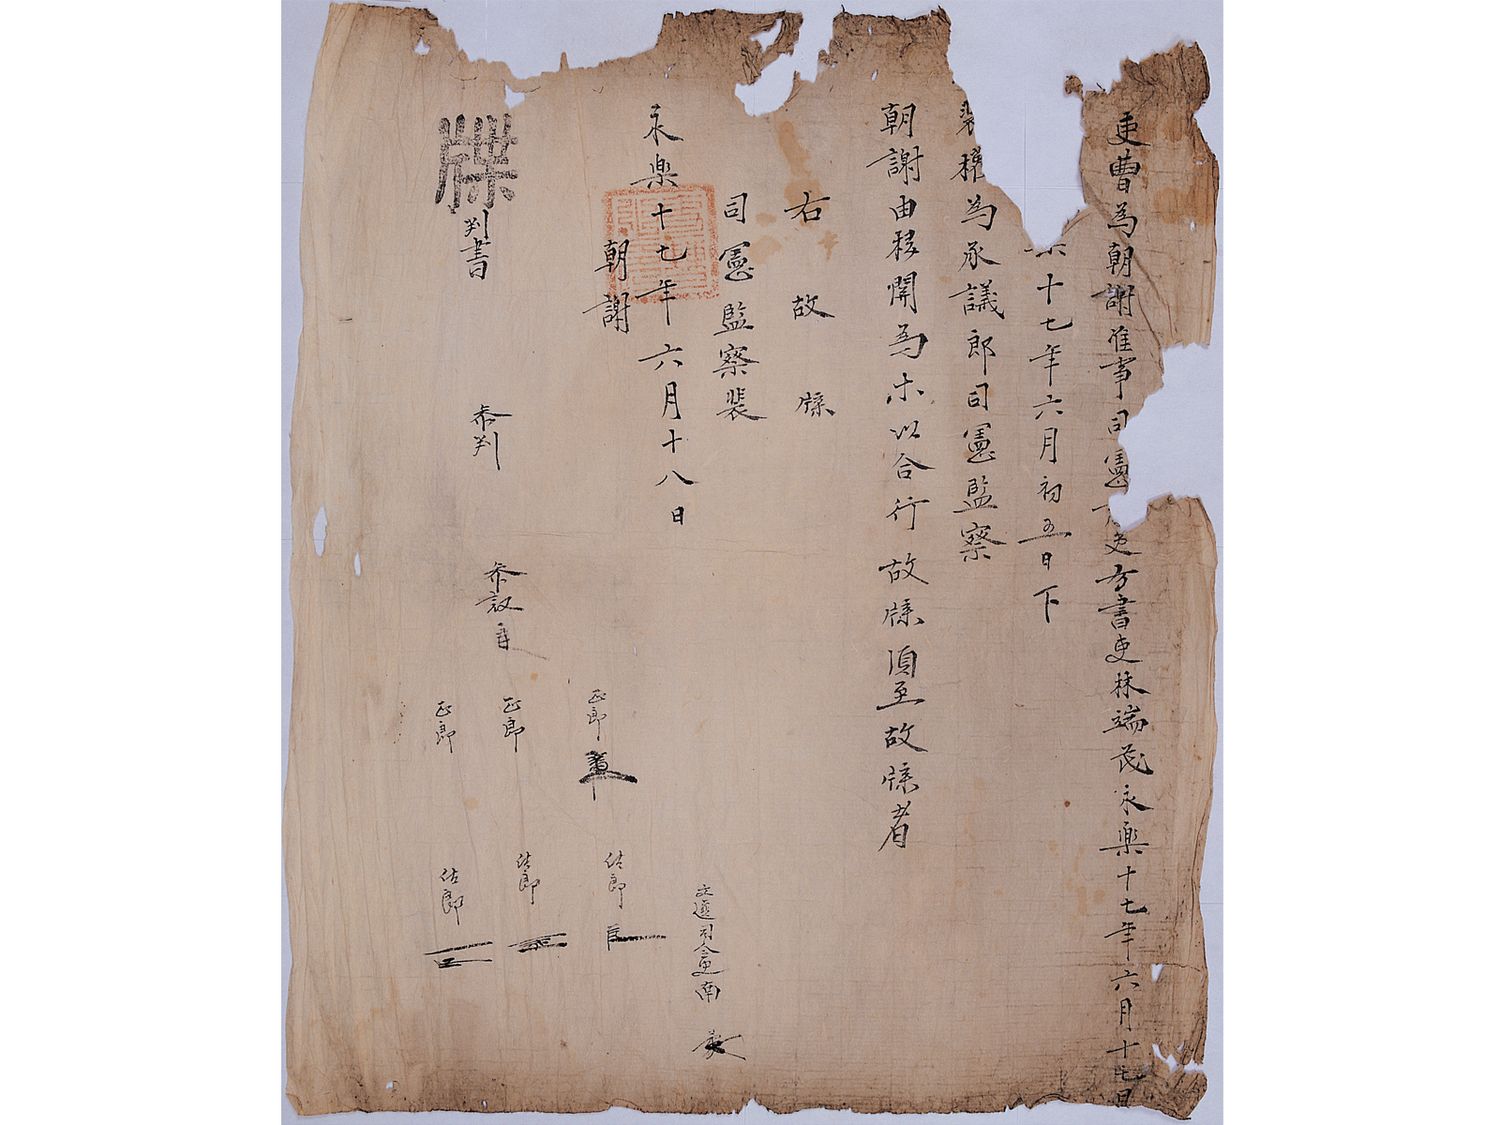 吏曹為朝謝准事司憲吏方書吏林端茂永樂十七年六月十七日
十七年六月初五日下
裴權為承議郎司憲監察
朝謝由移關為等以合行故牒須至故牒者
右故牒
司憲監察裴
永樂十七年六月十八日
朝謝
文選司令吏南
正郎
佐郎
牒
判書
參判
參議
正郎
佐郎
正郎
佐郎